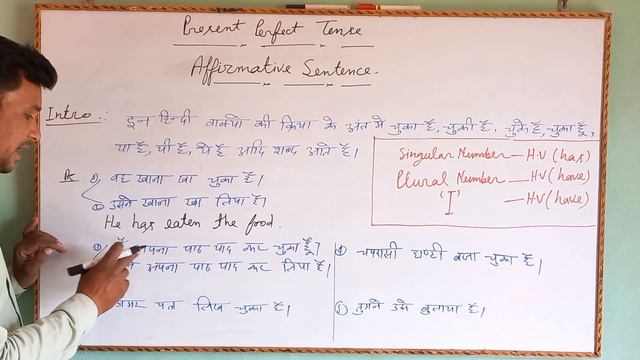 Present Perfect Tense
Affirmative Sentence.
Intro.: इन हिन्दी वाक्यो की क्रिया के अंत में चुका है, चुकी है, चुके है, चुका हूँ,
या है, यी है, ये है आदि शब्द आते है।
Singular Number — H.V (has)
Plural Number — H.V (have)
'I' — H.V (have)
① वह खाना खा चुका है।
② उसने खाना खा लिया है।
He has eaten the food.
अपना पाठ याद कर चुका हूँ।
अपना पाठ याद कर लिया है।
④ चपरासी घण्टी बजा चुका है।
पत्र लिख चुका है।
⑤ तुमने उसे बुलाया है।